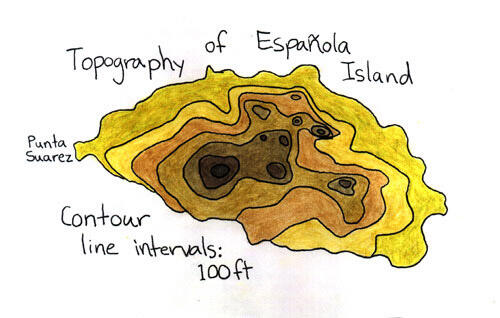 Topography of Española
Island
Punta
Suarez
Contour
line intervals:
100ft